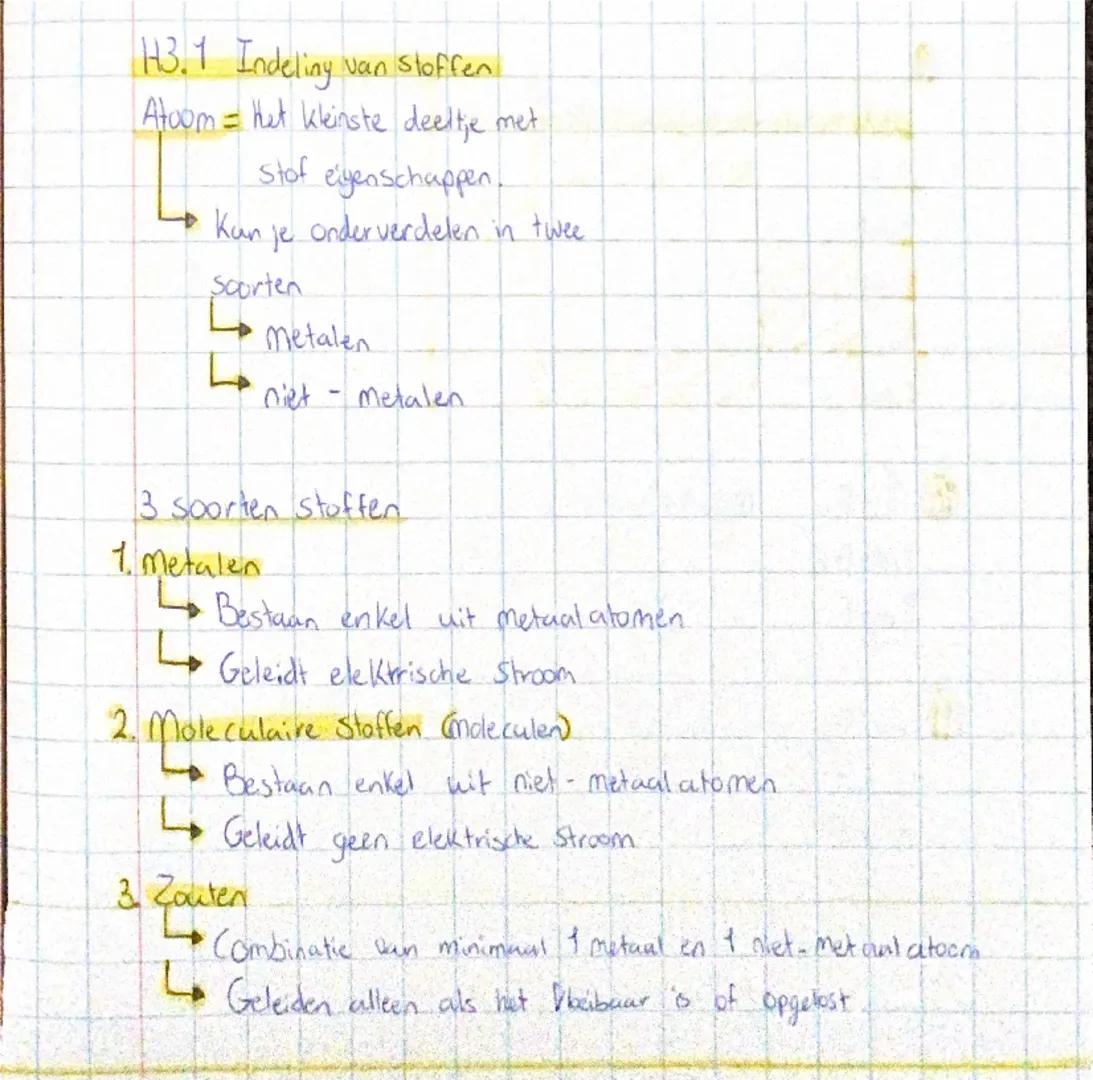 H3.1 Indeling van stoffen
Atoom = Het kleinste deeltje met
stof eigenschappen.
Kan je onderverdelen in twee
soorten
metalen
niet - metalen
3 soorten stoffen
1. Metalen
Bestaan enkel uit metaalatomen
Geleidt elektrische stroom
2. Moleculaire stoffen (moleculen)
Bestaan enkel uit niet - metaalatomen
Geleidt geen elektrische stroom
3. Zouten
Combinatie van minimaal 1 metaal en 1 niet-metaalatoom
Geleiden alleen als het is of opgelost